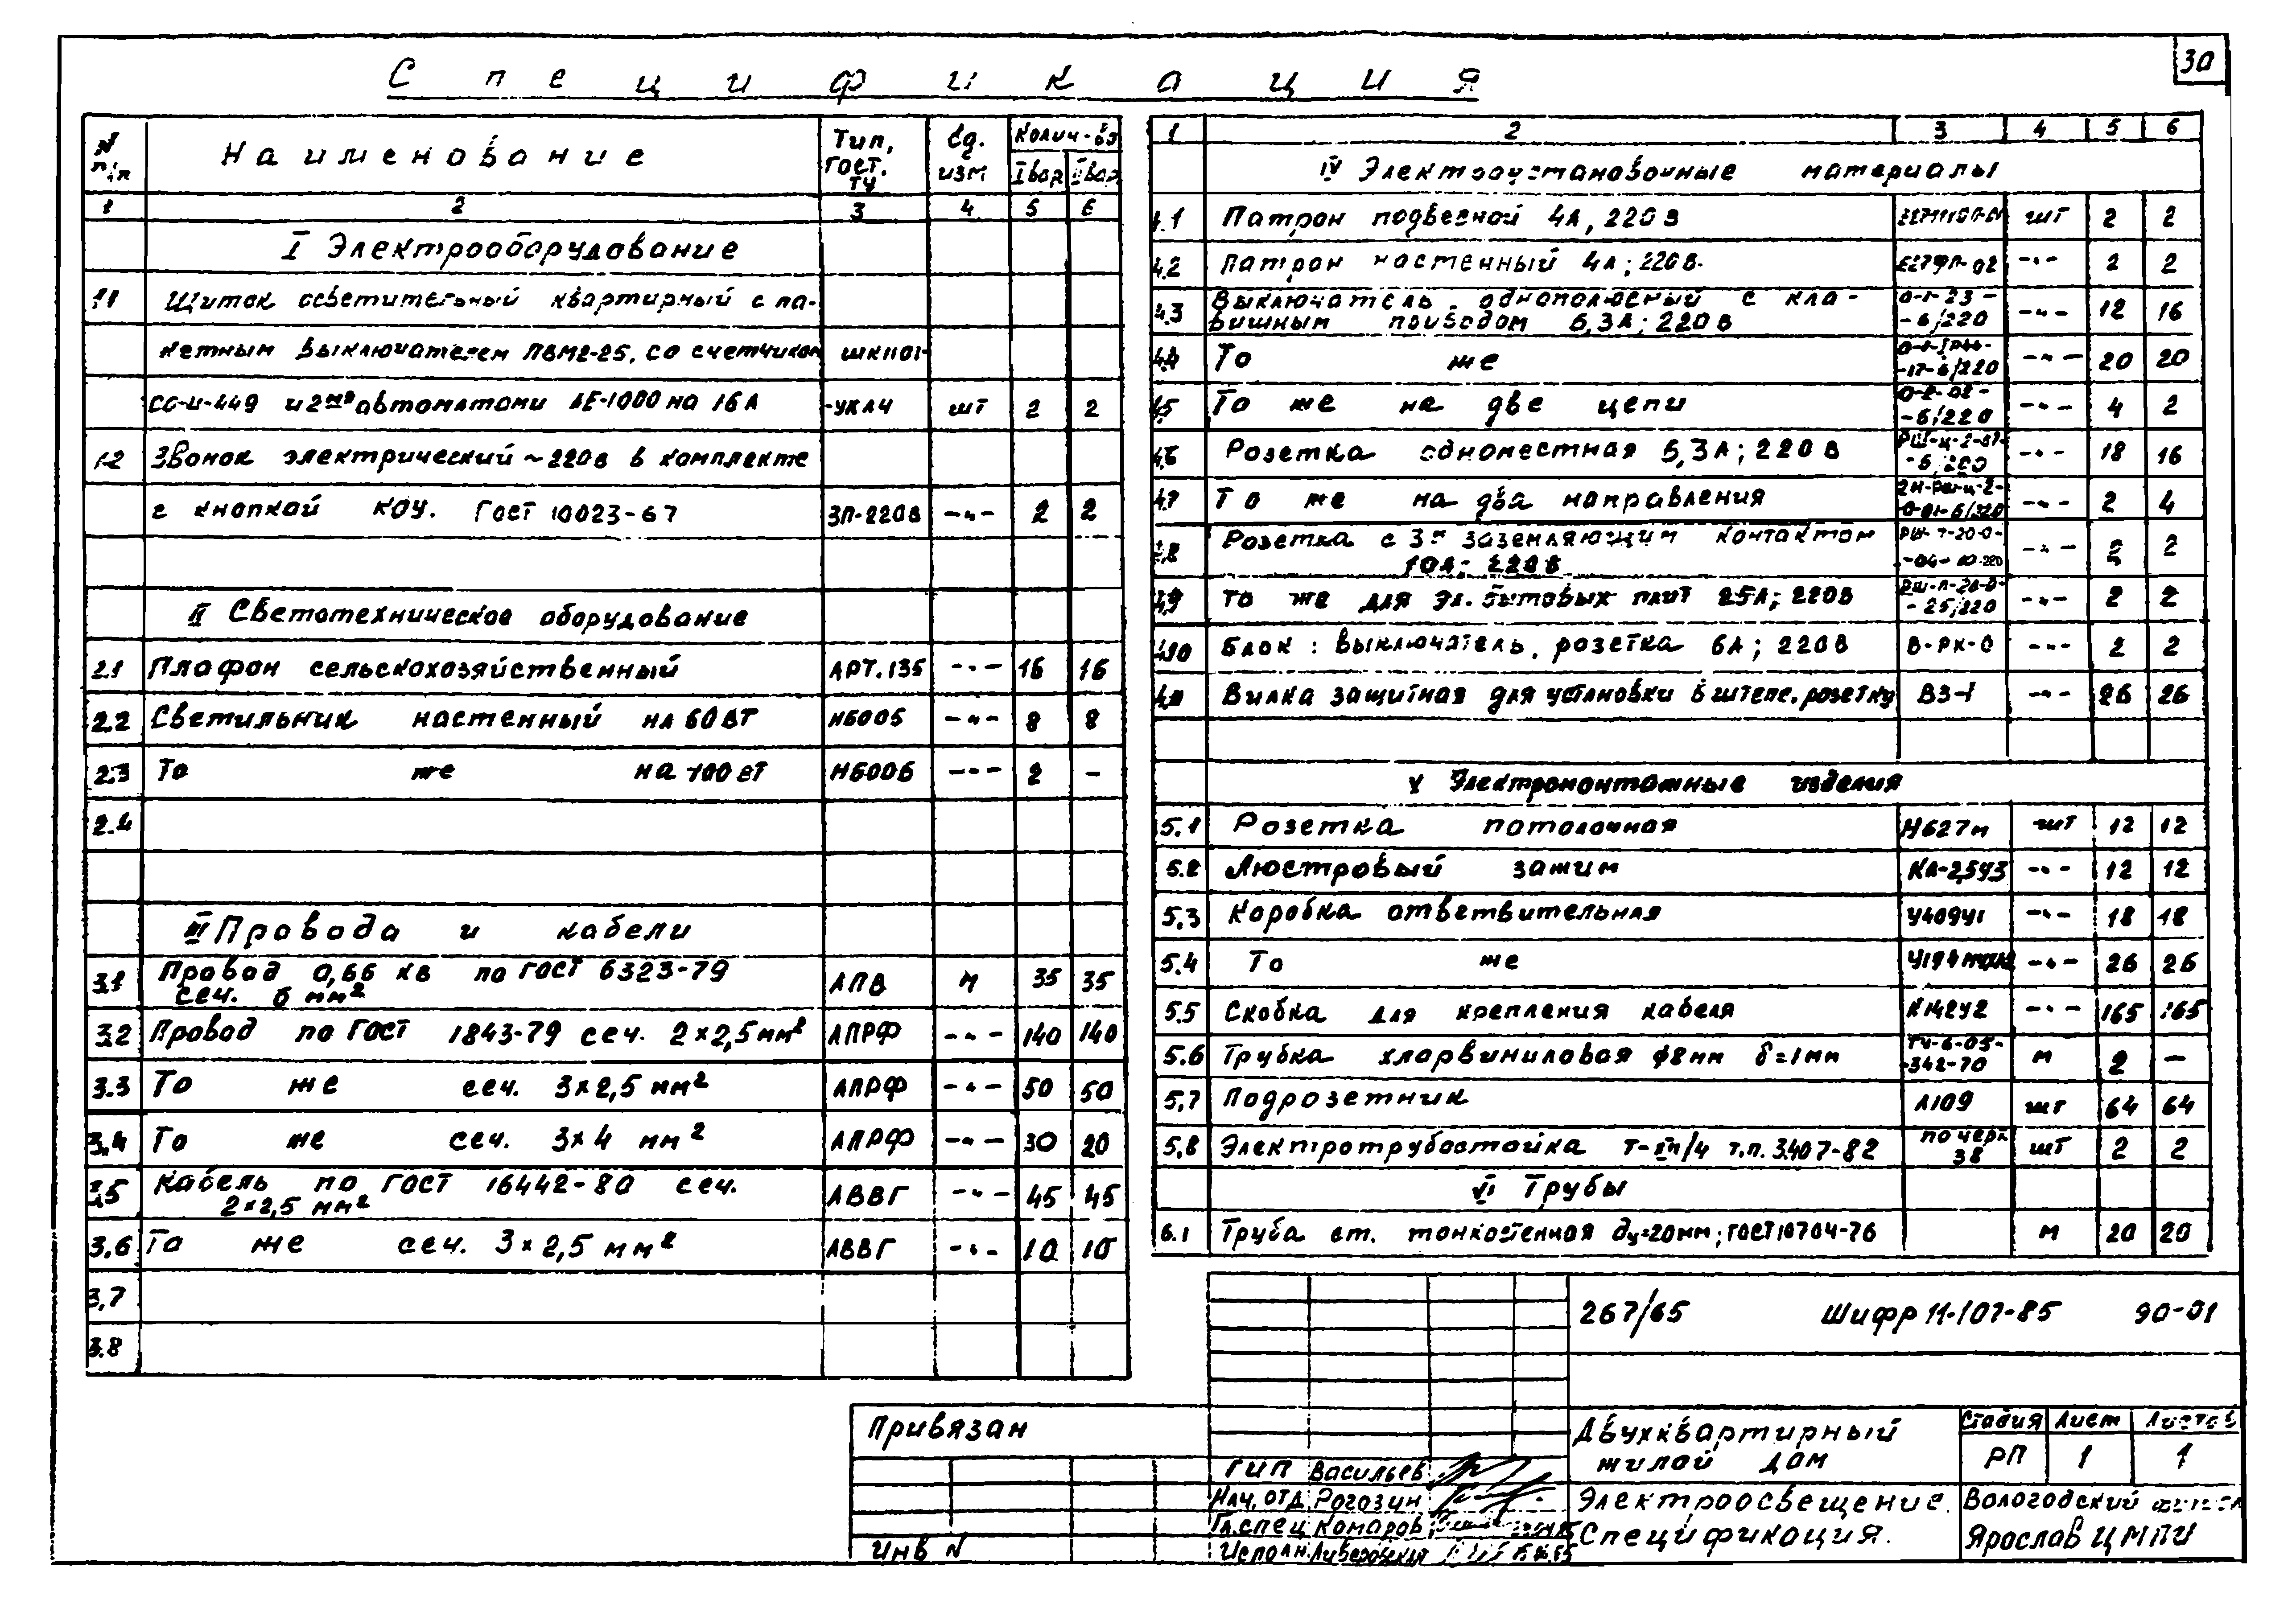 30
Спецификация
N п/п Наименование Тип, ГОСТ. ТУ Ед. изм Колич-во
I вар II вар
1 2 3 4 5 6
I Электрооборудование
1.1 Щиток осветительный квартирный с па-
кетным выключателем ПВМ2-25, со счетчиком ШК1101-
СО-И-449 и 2мя автоматами АЕ-1000 на 16А -УХЛ4 шт 2 2
1.2 Звонок электрический ~220в в комплекте
с кнопкой КОУ. ГОСТ 10023-67 ЗП-220В -"- 2 2
II Светотехническое оборудование
2.1 Плафон сельскохозяйственный АРТ.135 -"- 16 16
2.2 Светильник настенный на 60ВТ НБ005 -"- 8 8
2.3 То же на 100вт НБ006 -"- 2 -
2.4
III Провода и кабели
3.1 Провод 0,66 кв по ГОСТ 6323-79
сеч. 6 мм² АПВ м 35 35
3.2 Провод по ГОСТ 1843-79 сеч. 2×2,5мм² АПРФ -"- 140 140
3.3 То же сеч. 3×2,5 мм² АПРФ -"- 50 50
3.4 То же сеч. 3×4 мм² АПРФ -"- 30 20
3.5 Кабель по ГОСТ 16442-80 сеч.
2×2,5 мм² АВВГ -"- 45 45
3.6 То же сеч. 3×2,5 мм² АВВГ -"- 10 10
3.7
3.8
1 2 3 4 5 6
IV Электроустановочные материалы
4.1 Патрон подвесной 4А, 220в шт 2 2
4.2 Патрон настенный 4А; 220в. -"- 2 2
4.3 Выключатель однополюсный с кла- 0-1-23-
вишным приводом 6,3А; 220в -6/220 -"- 12 16
4.4 То же -17-6/220 -"- 20 20
4.5 То же на две цепи 0-2-02-
-6/220 -"- 4 2
4.6 Розетка одноместная 6,3А; 220в -"- 18 16
4.7 То же на два направления -"- 2 4
4.8 Розетка с 3м заземляющим контактом
10А; 220в -04-10-220 -"- 2 2
4.9 То же для эл. бытовых плит 25А; 220в -25/220 -"- 2 2
4.10 Блок: выключатель, розетка 6А; 220в В-РК-0 -"- 2 2
4.11 Вилка защитная для установки в штепс. розетку ВЗ-1 -"- 26 26
V Электромонтажные изделия
5.1 Розетка потолочная Н627м шт 12 12
5.2 Люстровый зажим КЛ-2,5У3 -"- 12 12
5.3 Коробка ответвительная У409У1 -"- 18 18
5.4 То же -"- 26 26
5.5 Скобка для крепления кабеля К142У2 -"- 165 165
5.6 Трубка хларвиниловая ф8мм δ=1мм ТУ-6-05-
-342-70 м 2 -
5.7 Подрозетник А109 шт 64 64
5.8 Электротрубостойка Т-IIп/4 т.п. 3.407-82 по черт.
38 шт 2 2
VI Трубы
6.1 Труба ст. тонкостенная dу=20мм; ГОСТ10704-76 м 20 20
267/65 Шифр 11-107-85 90-01
Привязан
Инв N
ГИП Васильев
Нач. отд Рогозин
Гл.спец Комаров
Исполн.
Двухквартирный
жилой дом
Стадия Лист Листов
РП 1 1
Электроосвещение.
Спецификация.
Вологодский
Ярослав ЦМПИ